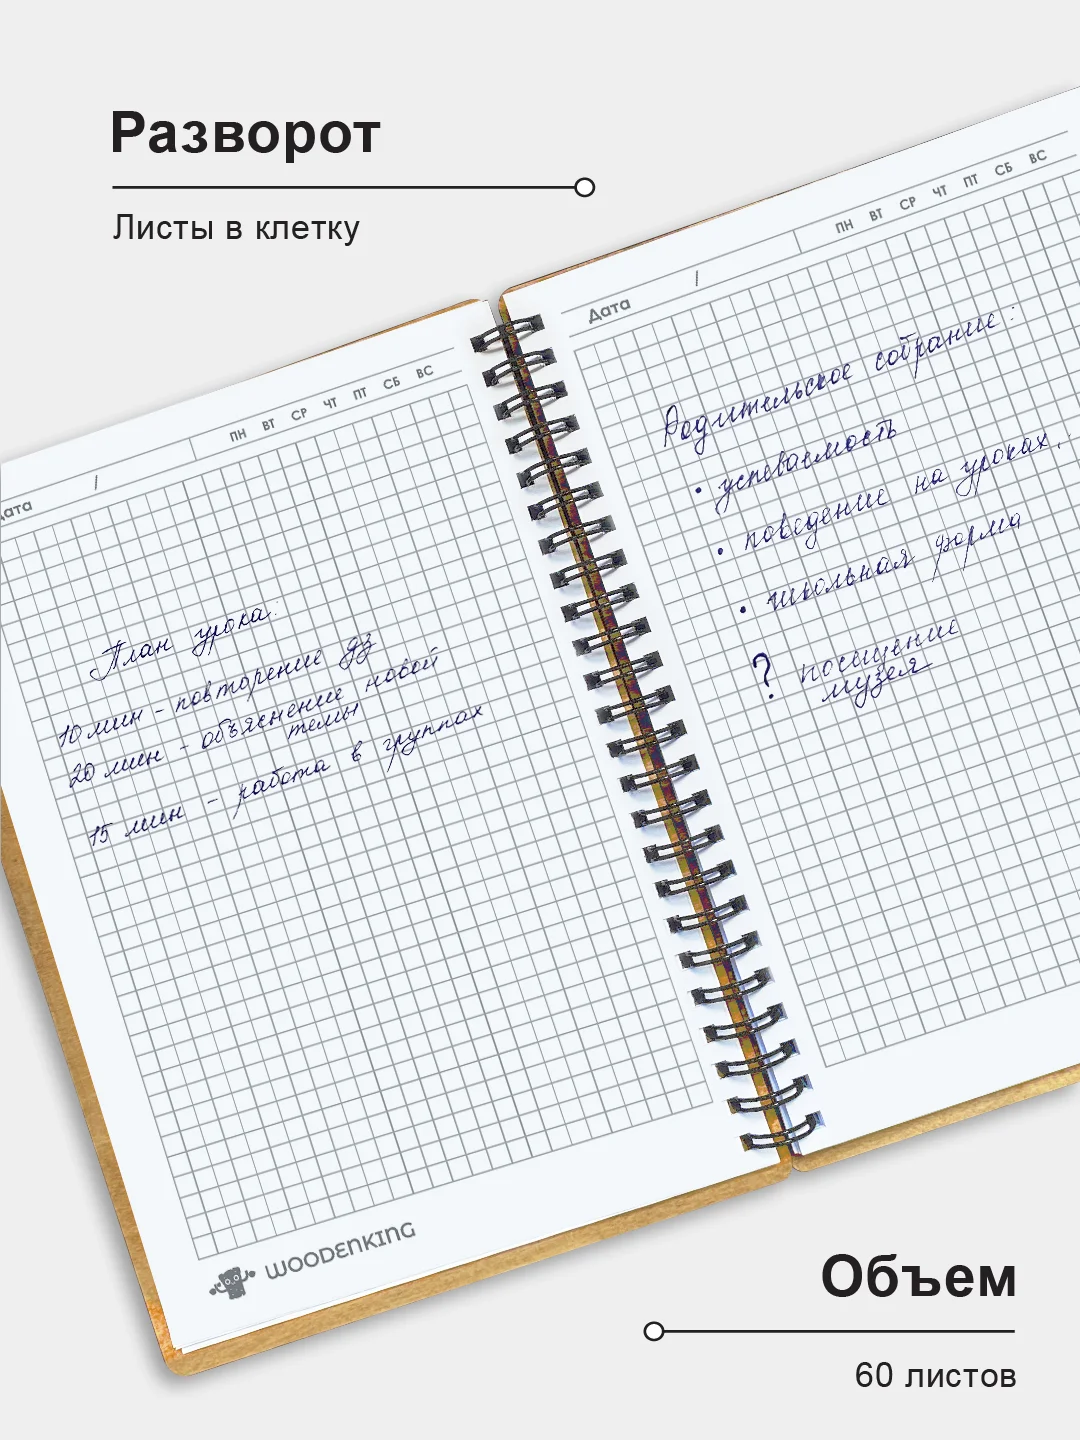 Разворот
Листы в клетку
Дата / ПН ВТ СР ЧТ ПТ СБ ВС
План урока:
10 мин - повторение дз
20 мин - объяснение новой
темы
15 мин - работа в группах
WOODENKING
Дата / ПН ВТ СР ЧТ ПТ СБ ВС
Родительское собрание:
• успеваемость
• поведение на уроках.
• школьная форма
? посещение
музея
Объем
60 листов